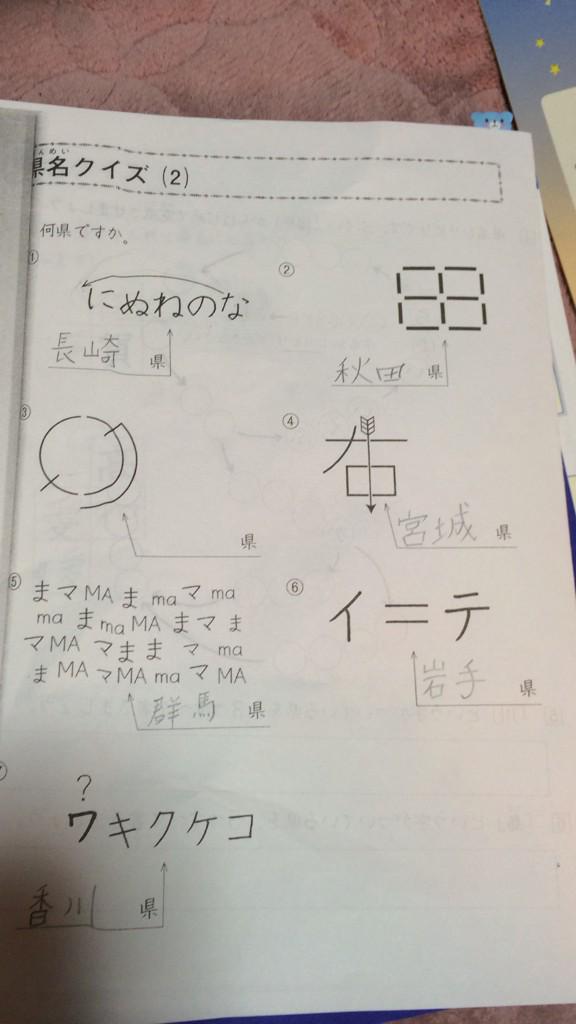 んめい
県名クイズ(2)
何県ですか。
①
にぬねのな
長崎 県
②
秋田 県
③
県
④
右
宮城 県
⑤
まマMAままmaマma
ma まmaMA まマま
マMA マまま マ ma
ま MA マMA ma マ MA
群馬 県
⑥
イ=テ
岩手 県
?
ワキクケコ
香川 県